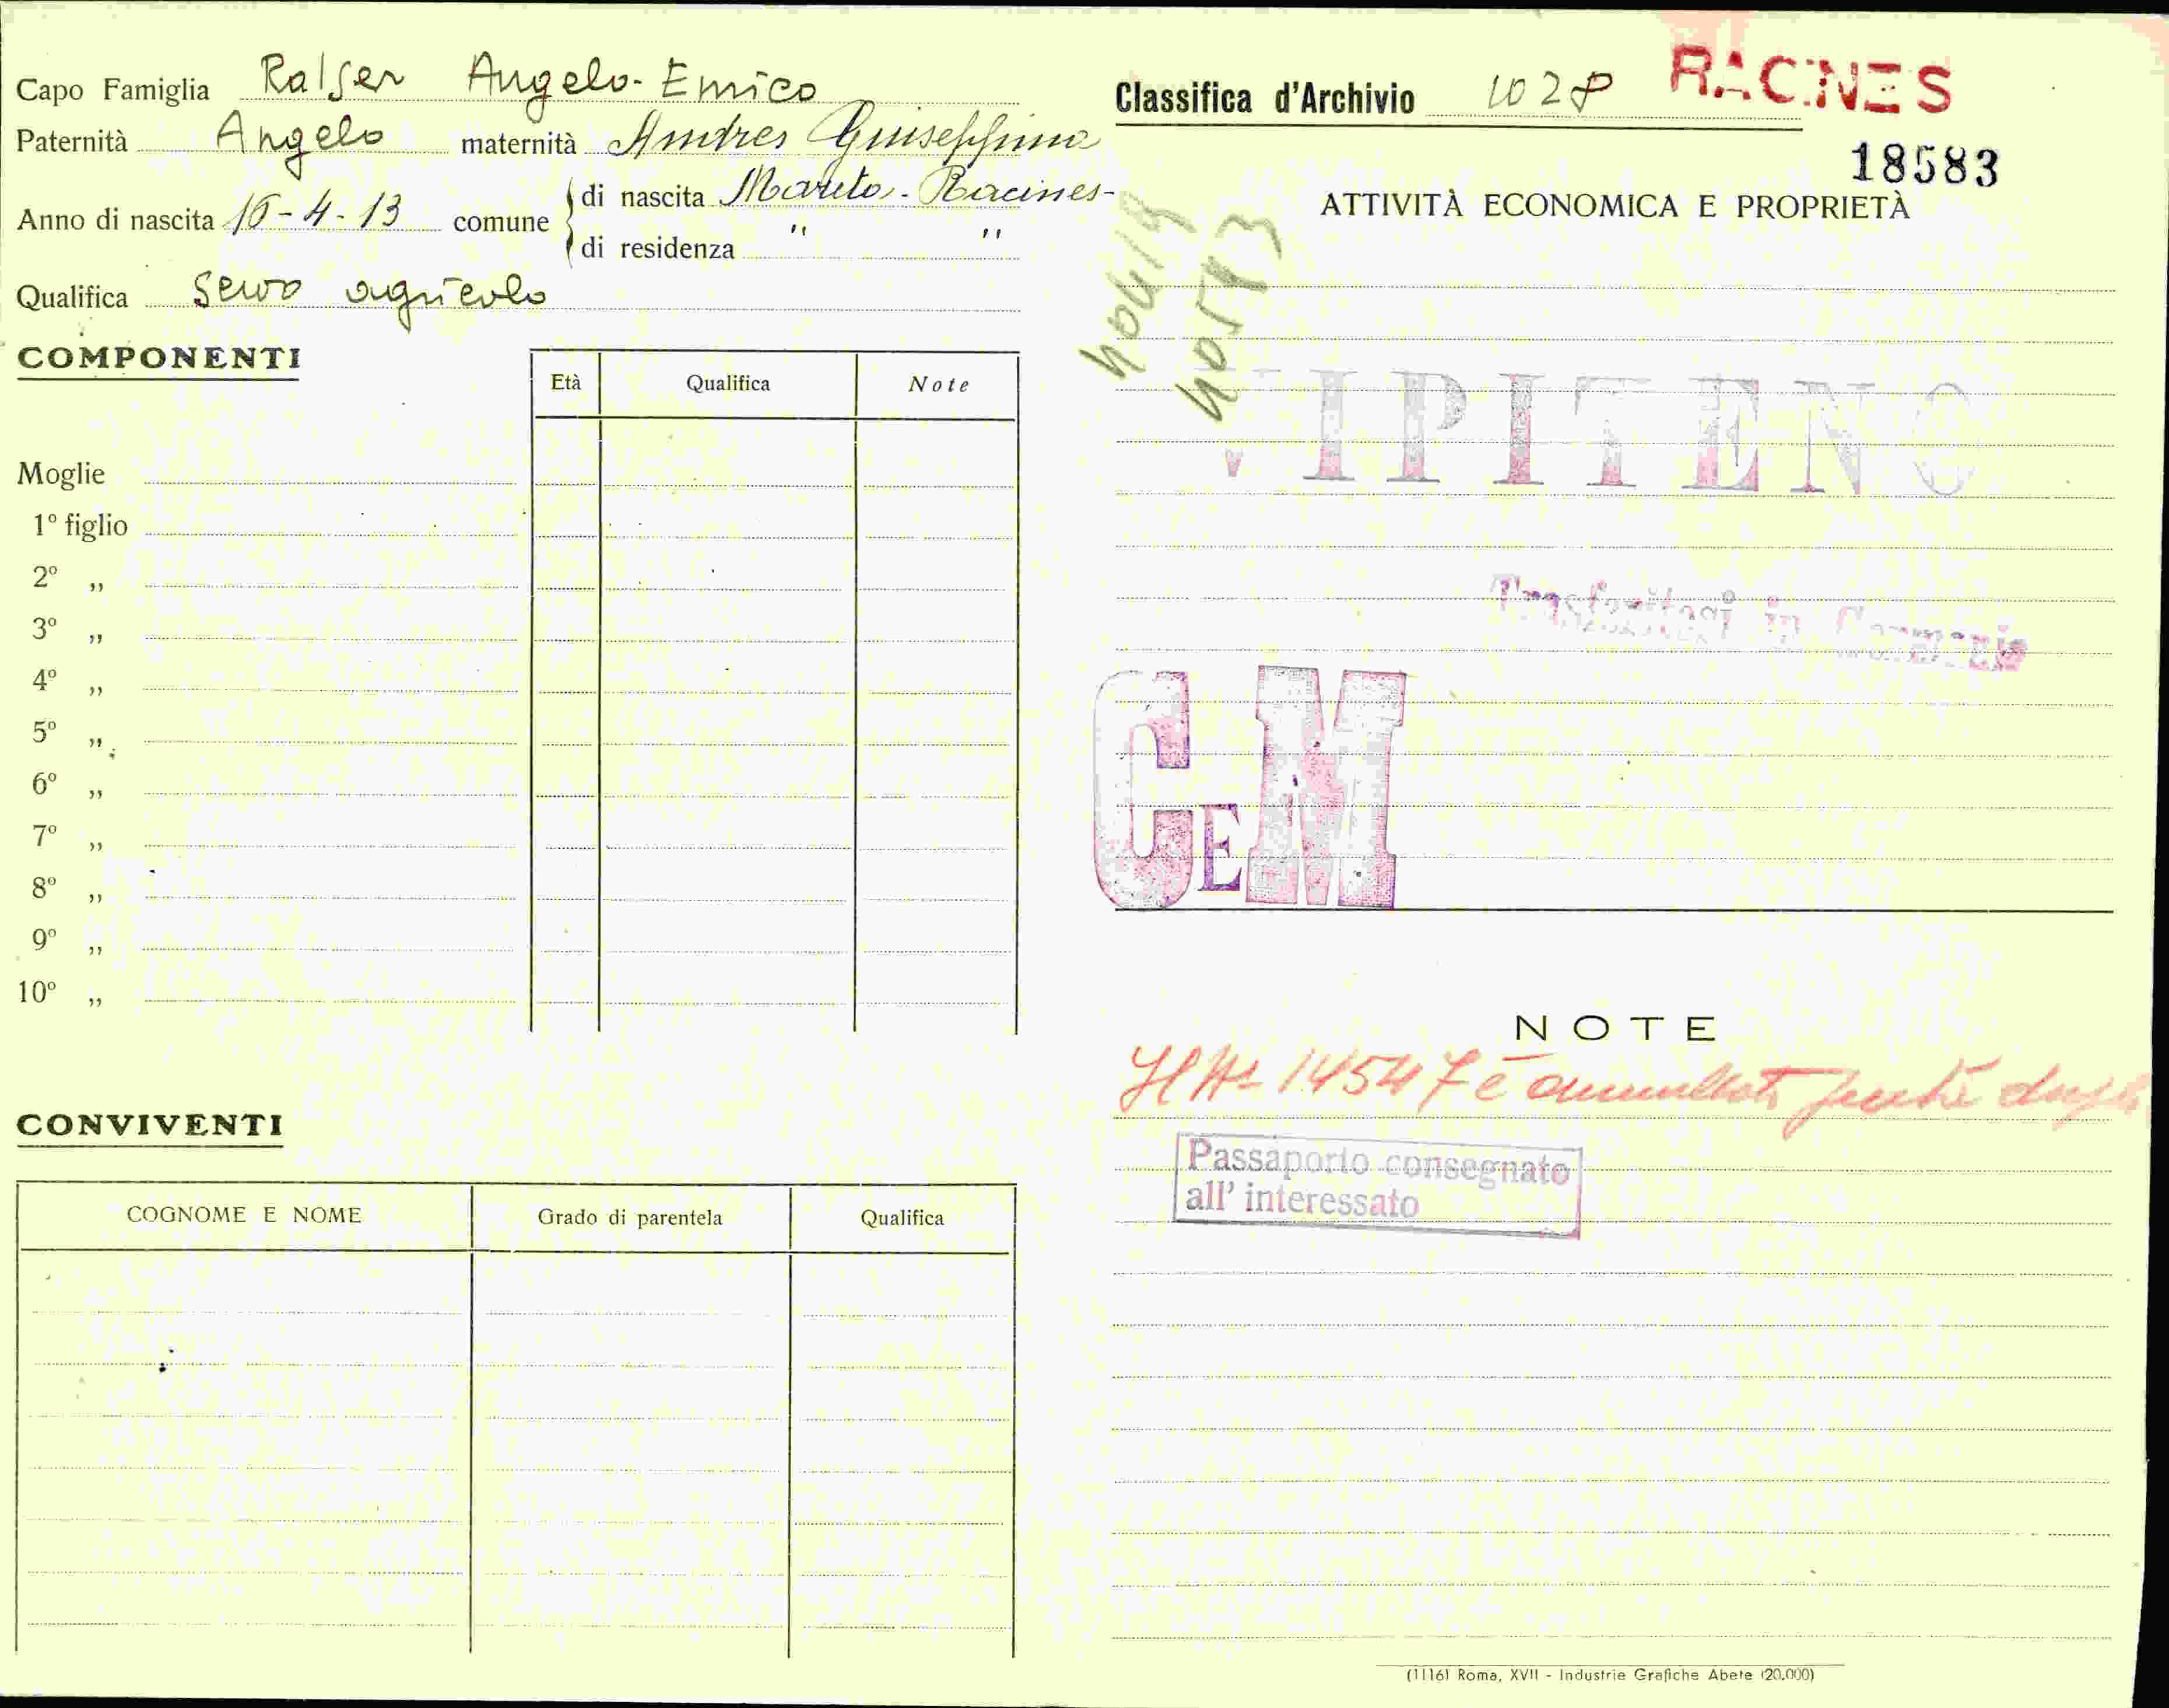 Capo Famiglia Ralser Angelo-Enrico
Paternità Angelo maternità Andres Giuseppina
Anno di nascita 16-4-13 comune
di nascita Mareta-Racines-
di residenza " "
Qualifica servo agricolo
COMPONENTI
Età Qualifica Note
Moglie
1º figlio
2º ,,
3º ,,
4º ,,
5º ,,
6º ,,
7º ,,
8º ,,
9º ,,
10º ,,
CONVIVENTI
COGNOME E NOME Grado di parentela Qualifica
Classifica d'Archivio 1028 RACINES
18583
ATTIVITÀ ECONOMICA E PROPRIETÀ
VIPITENO
Trasferitosi in Germania
CEM
NOTE
14547 è annullato perchè
Passaporto consegnato
all' interessato
(1116) Roma, XVII - Industrie Grafiche Abete (20.000)